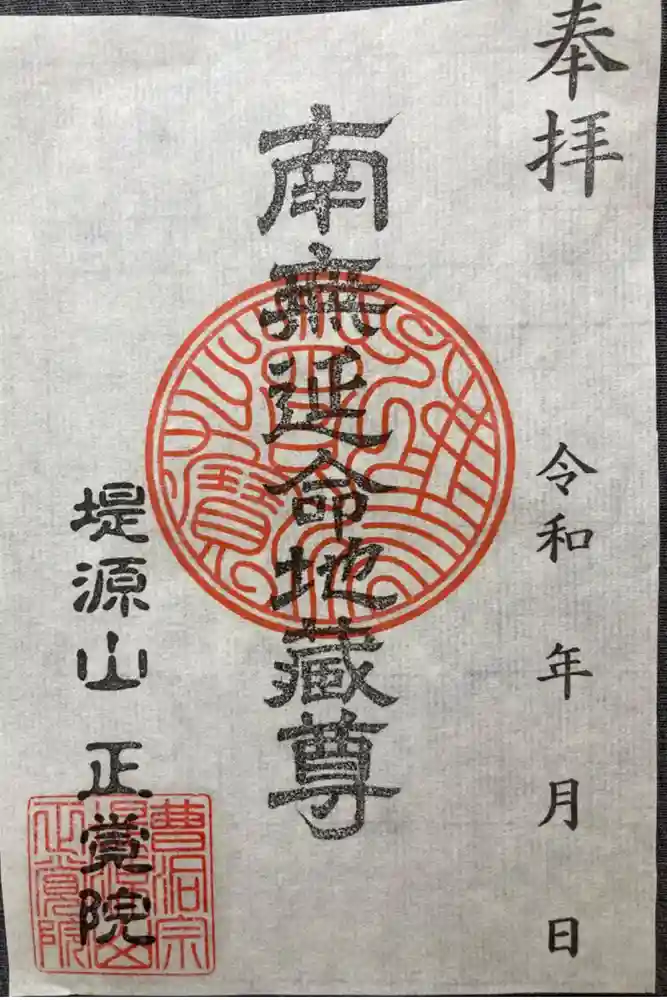 奉拝
令和 年 月 日
南無延命地蔵尊
堤源山 正覚院
曹洞宗
堤源山
正覚院